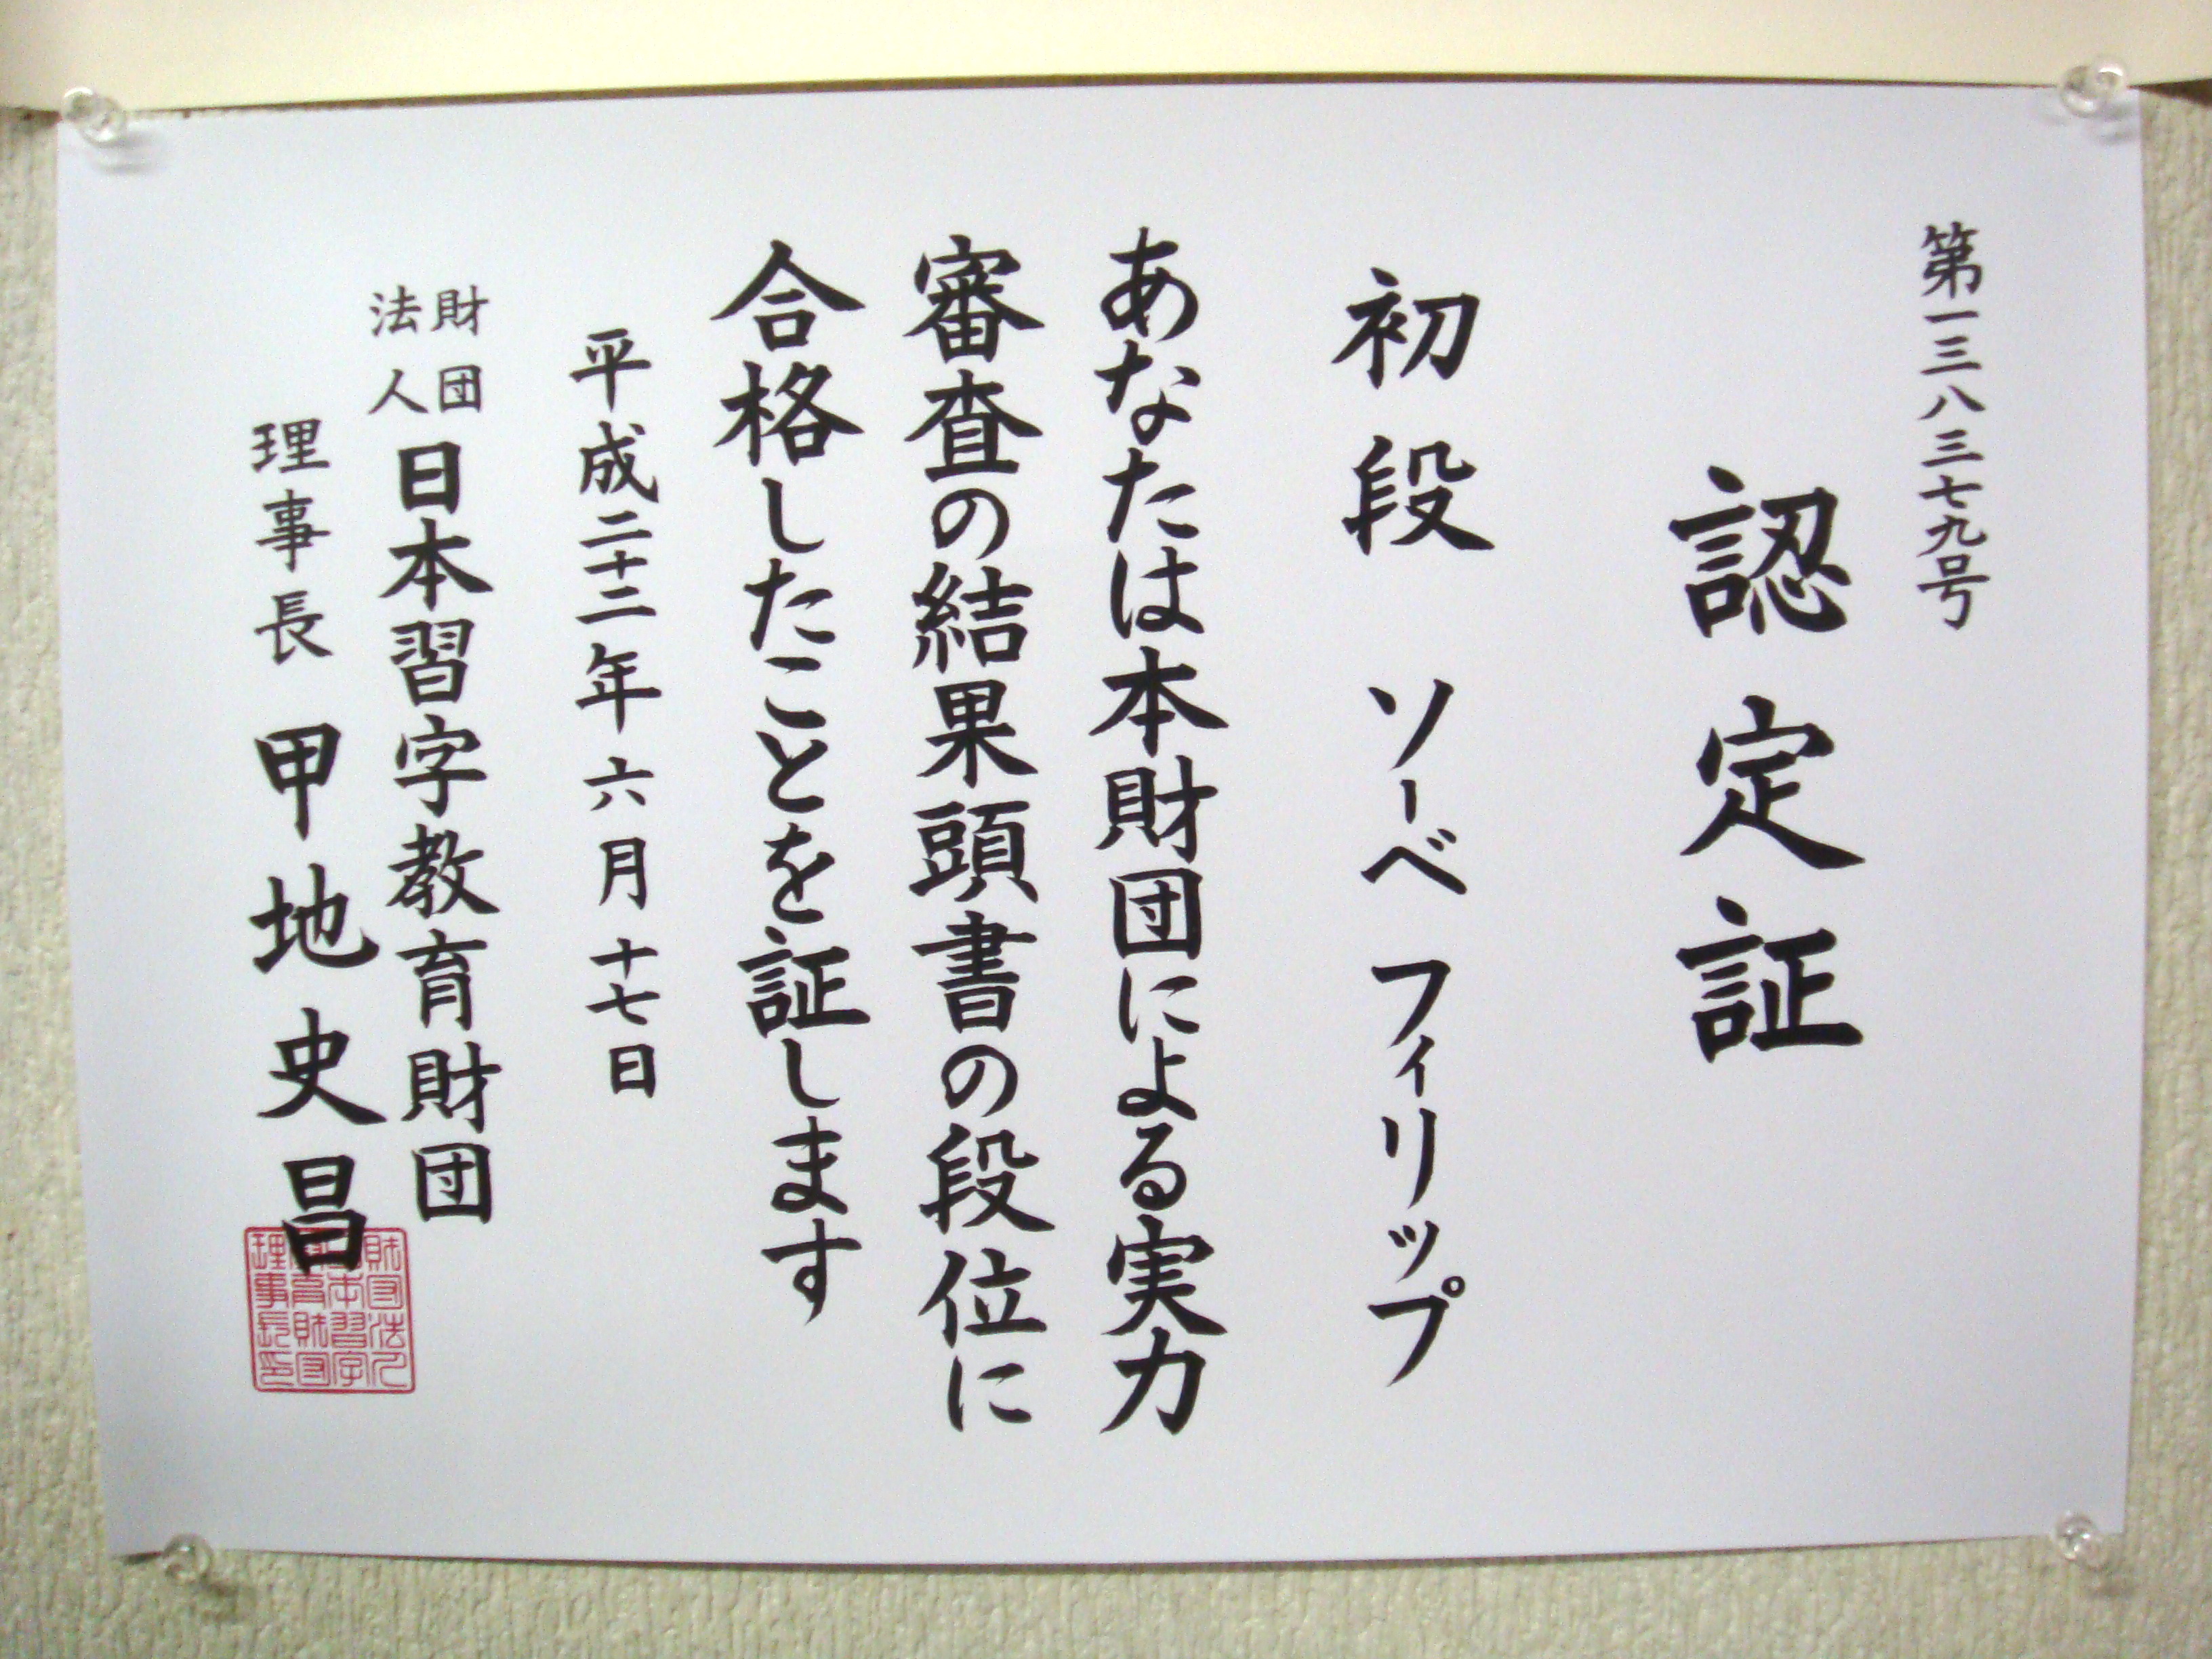 第一三八三七九号
認定証
初段 ソーベ フィリップ
あなたは本財団による実力
審査の結果頭書の段位に
合格したことを証します
平成二十二年六月十七日
財団法人 日本習字教育財団
理事長 甲地史昌
財団法人日本習字教育財団理事長印